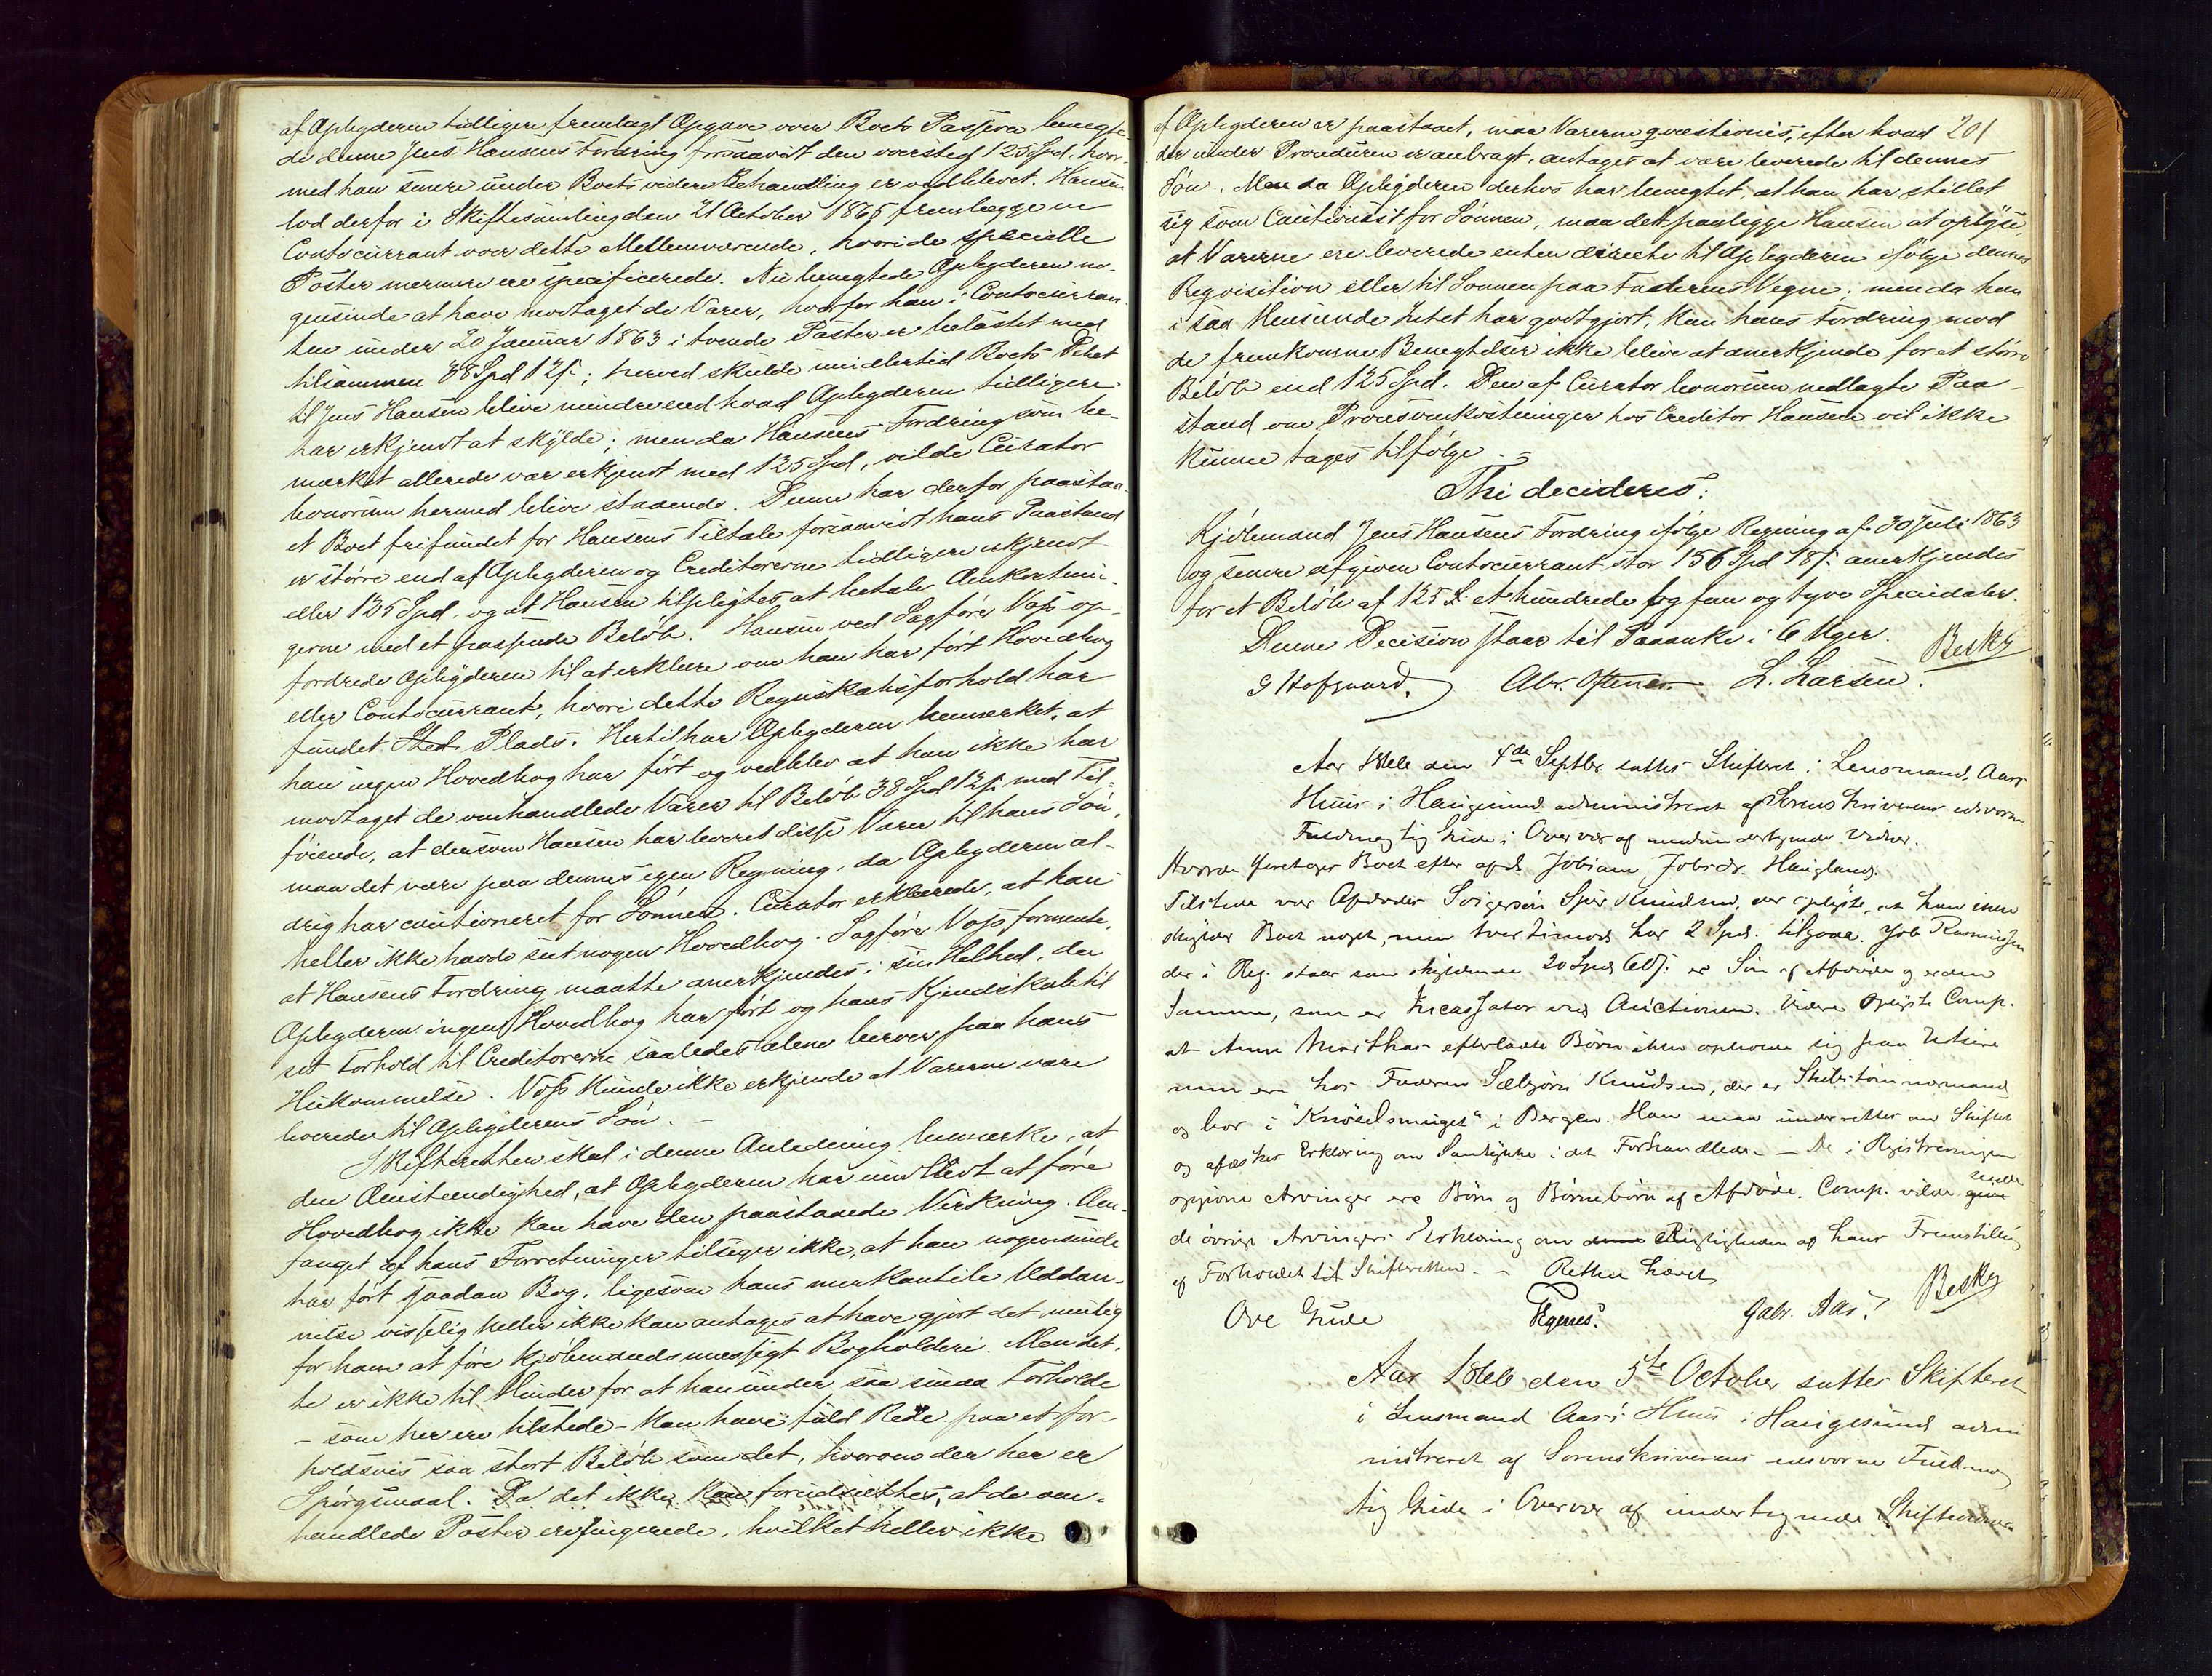 af Opbyderen tidligere fremlagt Opgave over Boets Passiva benegte-
de denne Jens Hansens Fordring forsaavidt den oversteg 125 Spd, hvor-
med han senere under Boets videre Behandling er vedblevet. Hansen
lod derfor i Skiftesamling den 21 October 1865 fremlægge en
Contocurrant over dette Mellemværende, hvori de specielle
Poster nærmere ere specificerede. Nu benegtede Opbyderen no-
gensinde at have modtaget de Varer, hvorfor han i Contocurran-
ten under 20 Januar 1863 i tvende Poster er belastet med
tilsammen 38 Spd 12 s; herved skulde imidlertid Boets Debet
til Jens Hansen blive mindre end hvad Opbyderen tidligere
har erkjendt at skylde; men da Hansens Fordring som be-
mærket allerede var erkjendt med 125 Spd, vilde Curator
bonorum hermed blive staaende. Denne har derfor paastaa-
et Boet frifundet for Hansens Tiltale forsaavidt hans Paastand
er større end af Opbyderen og Creditorerne tidligere erkjendt
eller 125 Spd. og at Hansen tilpligtes at betale Omkostnin-
gerne med et passende Beløb. Hansen ved Sagfører Voss op-
fordrede Opbyderen til at erklære om han har ført Hovedbog
eller Contocurrant, hvori dette Regnskabsforhold har
fundet Sted. Plads. Hertil har Opbyderen bemærket, at
han ingen Hovedbog har ført og vedblev at han ikke har
modtaget de omhandlede Varer til Beløb 38 Spd 12 s, med Til-
føiende, at dersom Hansen har leveret disse Varer til hans Søn,
maa det være paa dennes egen Regning, da Opbyderen al-
drig har cautioneret for Sønnen. Curator erklærede, at han
heller ikke havde seet nogen Hovedbog. Sagfører Voss formente,
at Hansens Fordring maatte anerkjendes i sin Helhed, da
Opbyderen ingen Hovedbog har ført og hans Kjendskab til
sit Forhold til Creditorerne saaledes alene beroer paa hans
Hukommelse. Voss kunde ikke erkjende at Varerne vare
leverede til Opbyderens Søn. –
Skifteretten skal i denne Anledning bemærke, at
den Omstændighed, at Opbyderen har undladt at føre
Hovedbog ikke kan have den paastaaede Virkning. Om-
fanget af hans Forretninger tilsiger ikke, at han nogensinde
har ført saadan Bog, ligesom hans merkantile Uddan-
nelse visselig heller ikke kan antages at have gjort det mulig
for ham at føre kjøbmandsmæssigt Bogholderi. Men det-
te er ikke til Hinder for at han under saa smaa Forholde
– som her ere tilstede – kan have fuld Rede paa et for-
holdsvis saa stort Beløb som det, hvorom der her er
Spørgsmaal. Da det ikke kan forudsættes, at de om-
handlede Poster ere fingerede, hvilket heller ikke
af Opbyderen er paastaaet, maa Varerne qvæstionis, efter hvad 201
der under Proceduren er anbragt, antages at være leverede til dennes
Søn. Men da Opbyderen derhos har benegtet, at han har stillet
sig som Cautionist for Sønnen, maa det paaligge Hansen at oplyse,
at Varerne ere leverede enten directe til Opbyderen ifølge dennes
Reqvisition eller til Sønnen paa Faderens Vegne; men da han
i saa Henseende Intet har godtgjort, kan hans Fordring mod
de fremkomne Benegtelser ikke blive at anerkjende for et større
Beløb end 125 Spd. Den af Curator bonorum nedlagte Paa-
stand om Procesomkostninger hos Creditor Hansen vil ikke
kunne tages tilfølge. –
Thi decideres:
Kjøbmand Jens Hansens Fordring ifølge Regning af 30 Juli 1863
og senere afgiven Contocurrant stor 156 Spd 18 s. anerkjendes
for et Beløb af 125 Et hundrede og fem og tyve Speciedaler.
Denne Decision staar til Paaanke i 6 Uger. Besky
G Hofgaard. Abr. Oftenes. L. Larsen.
Aar 1866 den 4de Septbr sattes Skifteret i Lensmand Aars
Huus i Haugesund administreret af Sorenskriverens edsvorne
Fuldmægtig Gude i Overvær af undertegnede Vidner.
Hvorda foretoges Boet efter afd. Jobiane Jobsdr. Haugland.
Tilstede var Afdødes Svigersøn Sjur Knudsen, der oplyste, at han ikke
skylder Boet noget, men tvertimod har 2 Spd. tilgode. Job Rasmussen
der i Reg. staar som skyldende 20 Spd 60 s. er Søn af Afdøde og er den
Samme, som er Incassator ved Auctionen. Videre oplyste Comp.
at Anne Marthas efterladte Børn ikke opholde sig paa Utsire
men ere hos Faderen Sæbjørn Knudsen, der er Skibstømmermand
og bor i "Knøselsmuget" i Bergen. Han maa underrettes om Skiftet
og afæskes Erklæring om Samtykke i det Forhandlede. – De i Registreringen
opgivne Arvinger ere Børn og Børnebørn af Afdøde. Comp. vilde give
de øvrige Arvingers Erklæring om Rigtigheden af hans Fremstilling
af Forholdet til Skifteretten. – Retten hævet
Ove Gude Gabr. Aas. Besky
Aar 1866 den 5te October sattes Skifteret
i Lensmand Aars's Huus i Haugesund admi
nistreret af Sorenskriverens edsvorne Fuldmæg
tig Gude i Overvær af undertegnede Skiftevidner.